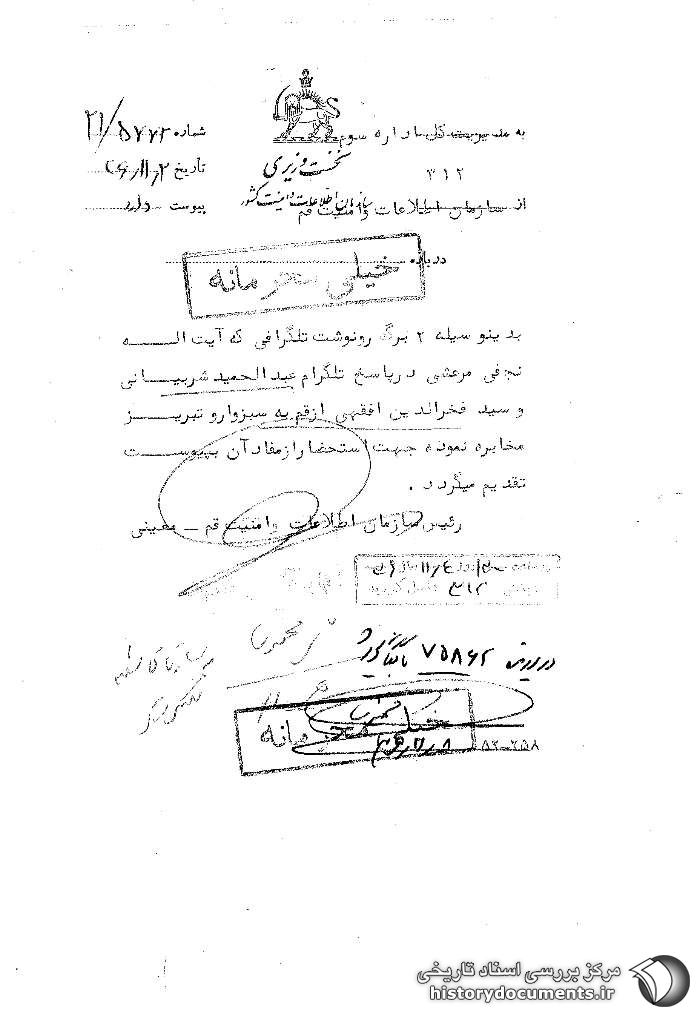 به مدیریت کل اداره سوم
۳۱۲
از سازمان اطلاعات و امنیت قم
درباره
نخست وزیری
سازمان اطلاعات و امنیت کشور
شماره ۲۱/۵۷۶۲
تاریخ
پیوست دارد
خیلی محرمانه
بدینوسیله ۲ برگ رونوشت تلگرافی که آیت اله
نجفی مرعشی درپاسخ تلگرام عبدالحمید شربیانی
و سید فخرالدین افقهی ازقم به سبزوار و تبریز
مخابره نموده جهت استحضار از مفاد آن بپیوست
تقدیم میگردد .
رئیس سازمان اطلاعات وامنیت قم – معینی
۳۱۲
در پرونده ۷۵۸۶۲ بایگانی شود
خیلی محرمانه
۵۲-۲۵۸
مرکز بررسی اسناد تاریخی
historydocuments.ir